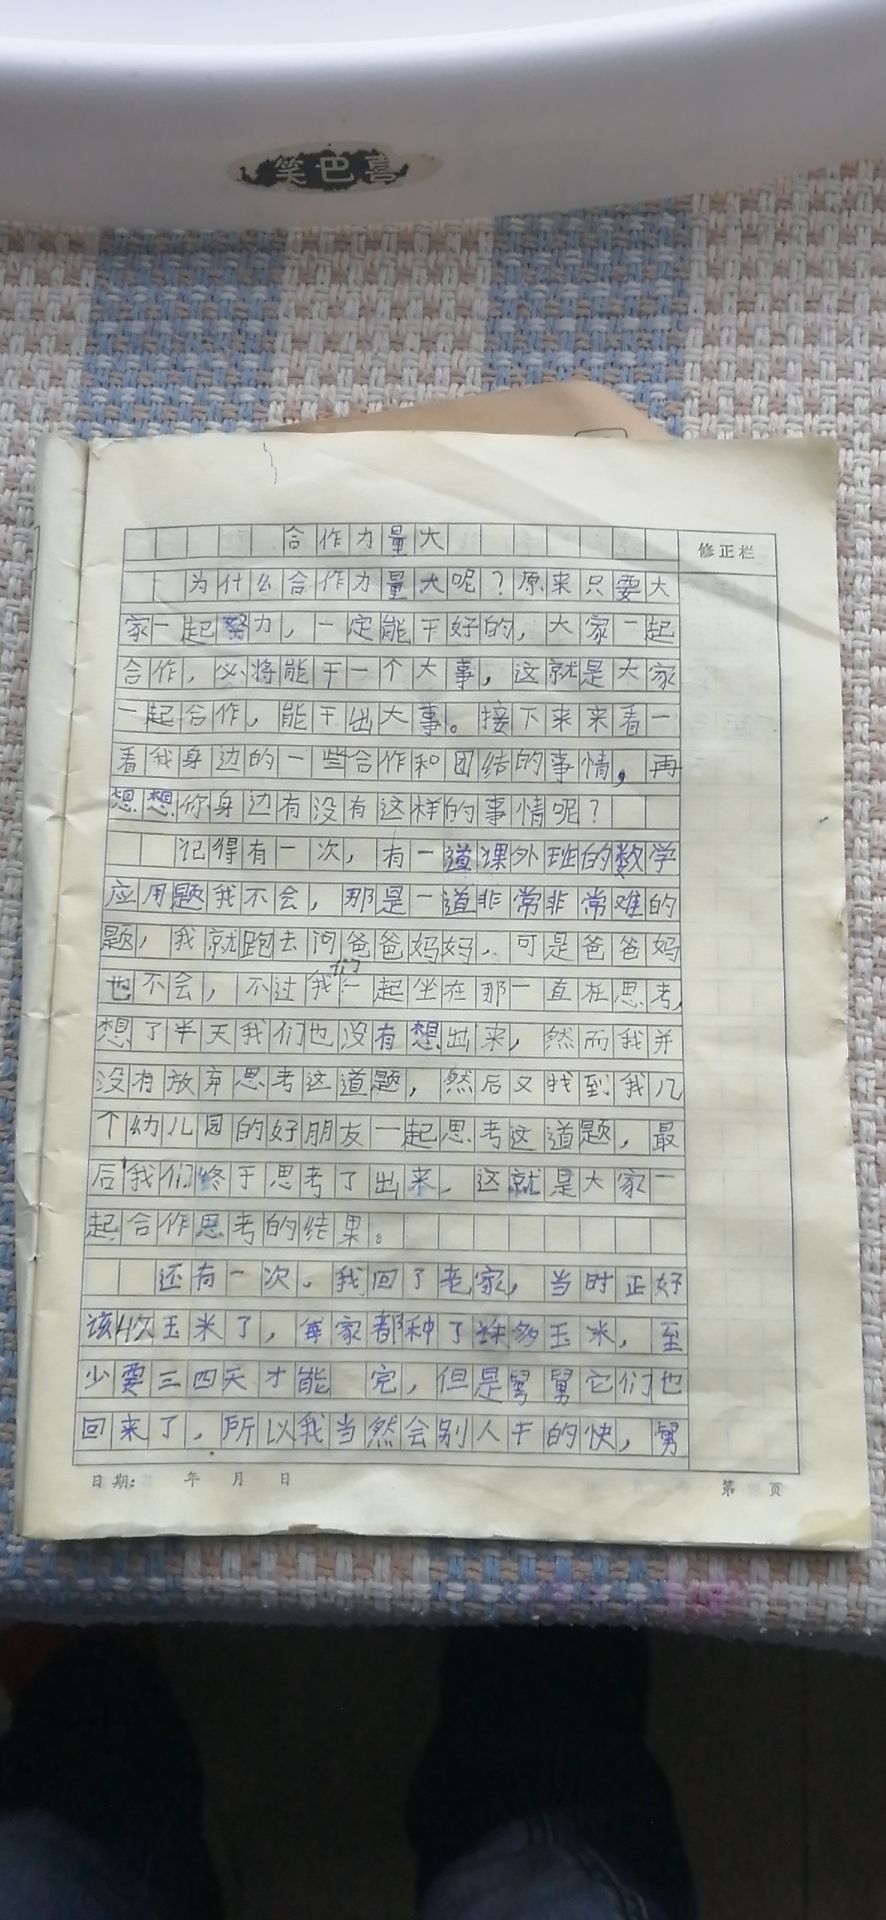 笑巴喜
合作力量大
修正栏
为什么合作力量大呢？原来只要大
家一起努力，一定能干好的，大家一起
合作，必将能干一个大事，这就是大家
一起合作，能干出大事。接下来来看一
看我身边的一些合作和团结的事情，再
想想你身边有没有这样的事情呢？
记得有一次，有一道课外班的数学
应用题我不会，那是一道非常非常难的
题，我就跑去问爸爸妈妈，可是爸爸妈
也不会，不过我们一起坐在那一直在思考，
想了半天我们也没有想出来，然而我并
没有放弃思考这道题，然后又找到我几
个幼儿园的好朋友一起思考这道题，最
后我们终于思考了出来，这就是大家一
起合作思考的结果。
还有一次，我回了老家，当时正好
该收玉米了，每家都种了许多玉米，至
少要三四天才能 完，但是舅舅它们也
回来了，所以我当然会别人干的快，舅
日期： 年 月 日
第 页